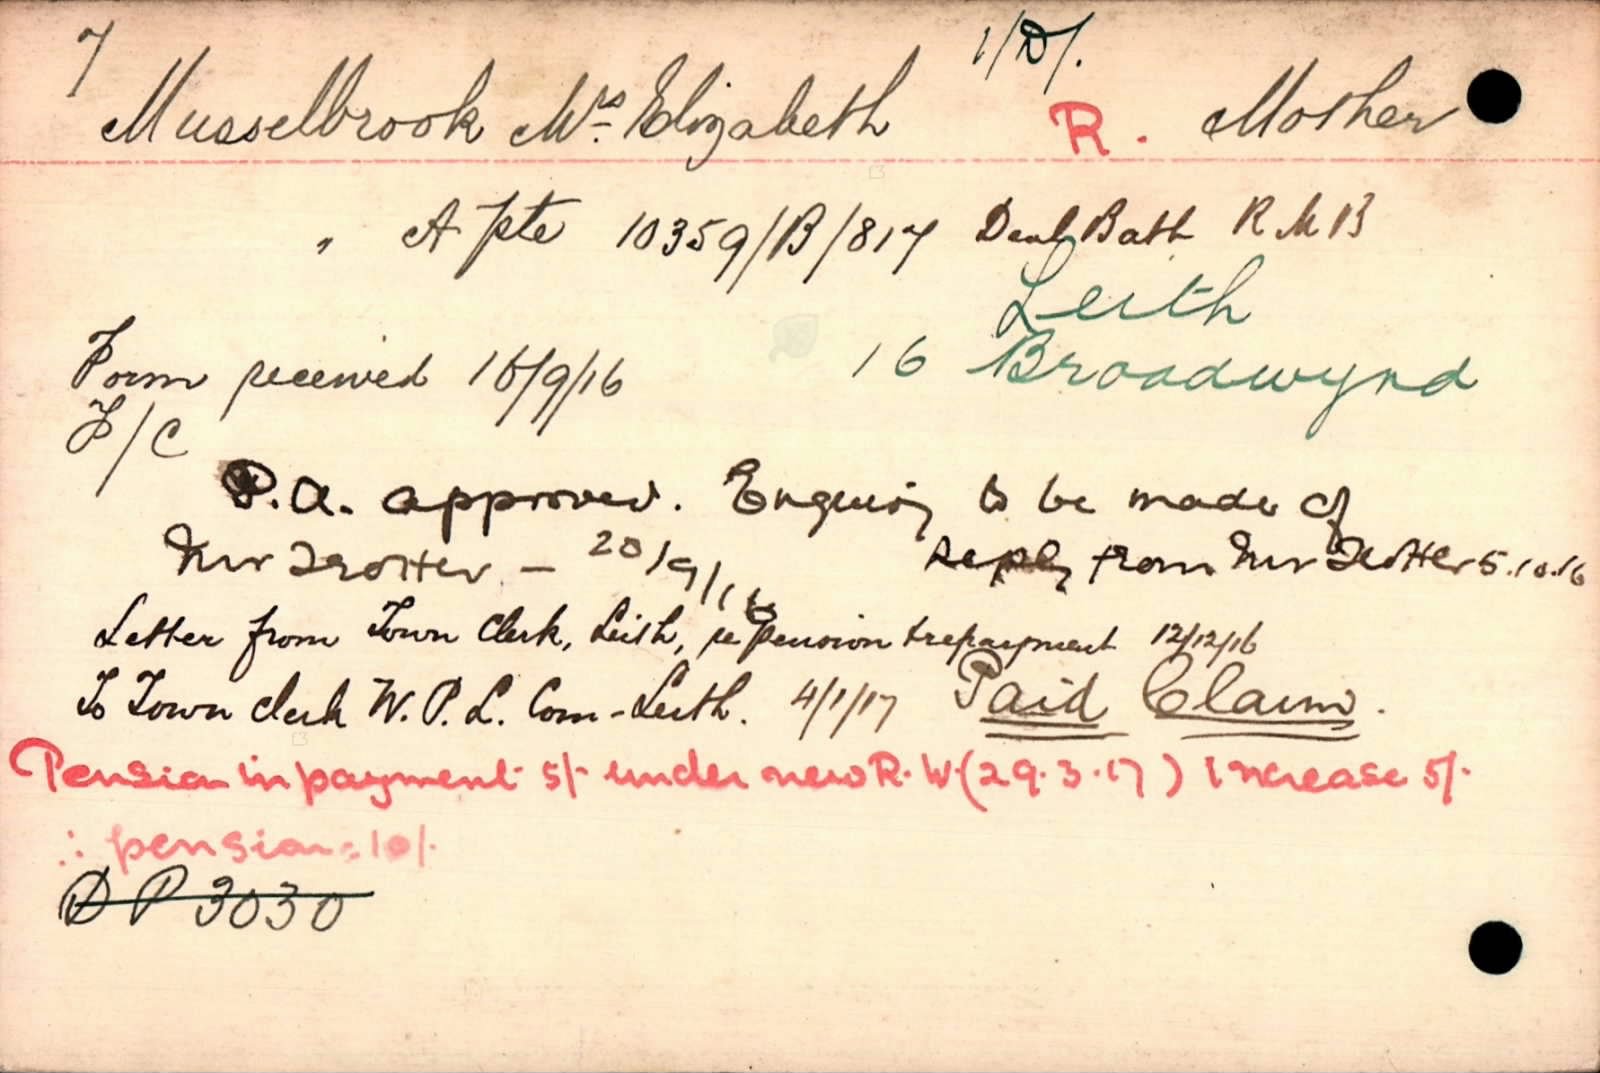 7 1/D/.
Musselbrook Mrs Elizabeth R. Mother
" A Pte 10359/B/817 Deal Batt R M B
Leith
Form received 16/9/16 16 Broadwynd
F/C
P.A. approved. Enquiry to be made of
Mr Trotter – 20/9/16 Reply from Mr Trotter 5.10.16
Letter from Town Clerk, Leith, re pension & repayment 12/12/16
To Town Clerk W. P. L. Com - Leith. 4/1/17 Paid Claim.
Pension in payment 5/- under new R.W. (29.3.17) Increase 5/-
∴ pension = 10/-
D P 3030